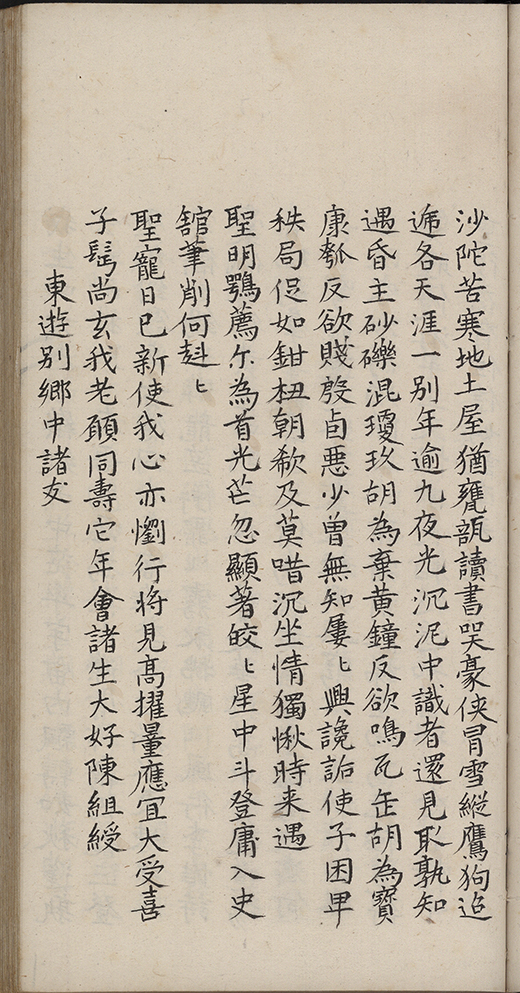 沙陀苦寒地土屋猶甕瓿讀書哭豪俠冒雪縱鷹狗迢
遞各天涯一別年逾九夜光沉泥中識者還見取孰知
遇昏主砂礫混瓊玖胡為棄黃鐘反欲鳴瓦缶胡為寶
康瓠反欲賤殷卣惡少曾無知屢〻興讒詬使子困卑
秩局促如鉗杻朝欷及莫唶沉坐情獨愀時来遇
聖明鶚薦尓為首光芒忽顯著皎〻星中斗登庸入史
舘筆削何赳〻
聖寵日已新使我心亦懰行将見高擢量應冝大受喜
子髩尚玄我老願同壽它年會諸生大好陳組綬
東遊别鄉中諸友